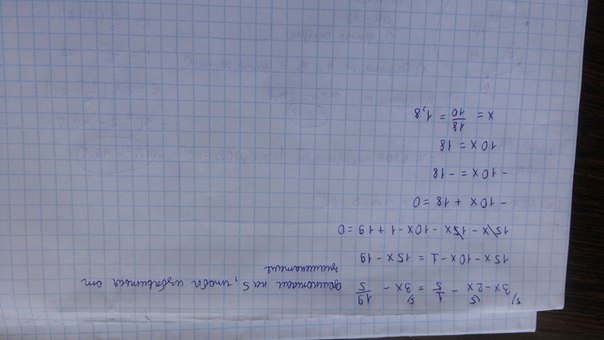 5/ 3x - 2x - 1/5 = 3x - 19/5 домножаем на 5, чтобы избавиться от
знаменателя
15x - 10x - 1 = 15x - 19
15x - 15x - 10x - 1 + 19 = 0
- 10x + 18 = 0
- 10x = - 18
10x = 18
x = 18/10 = 1,8